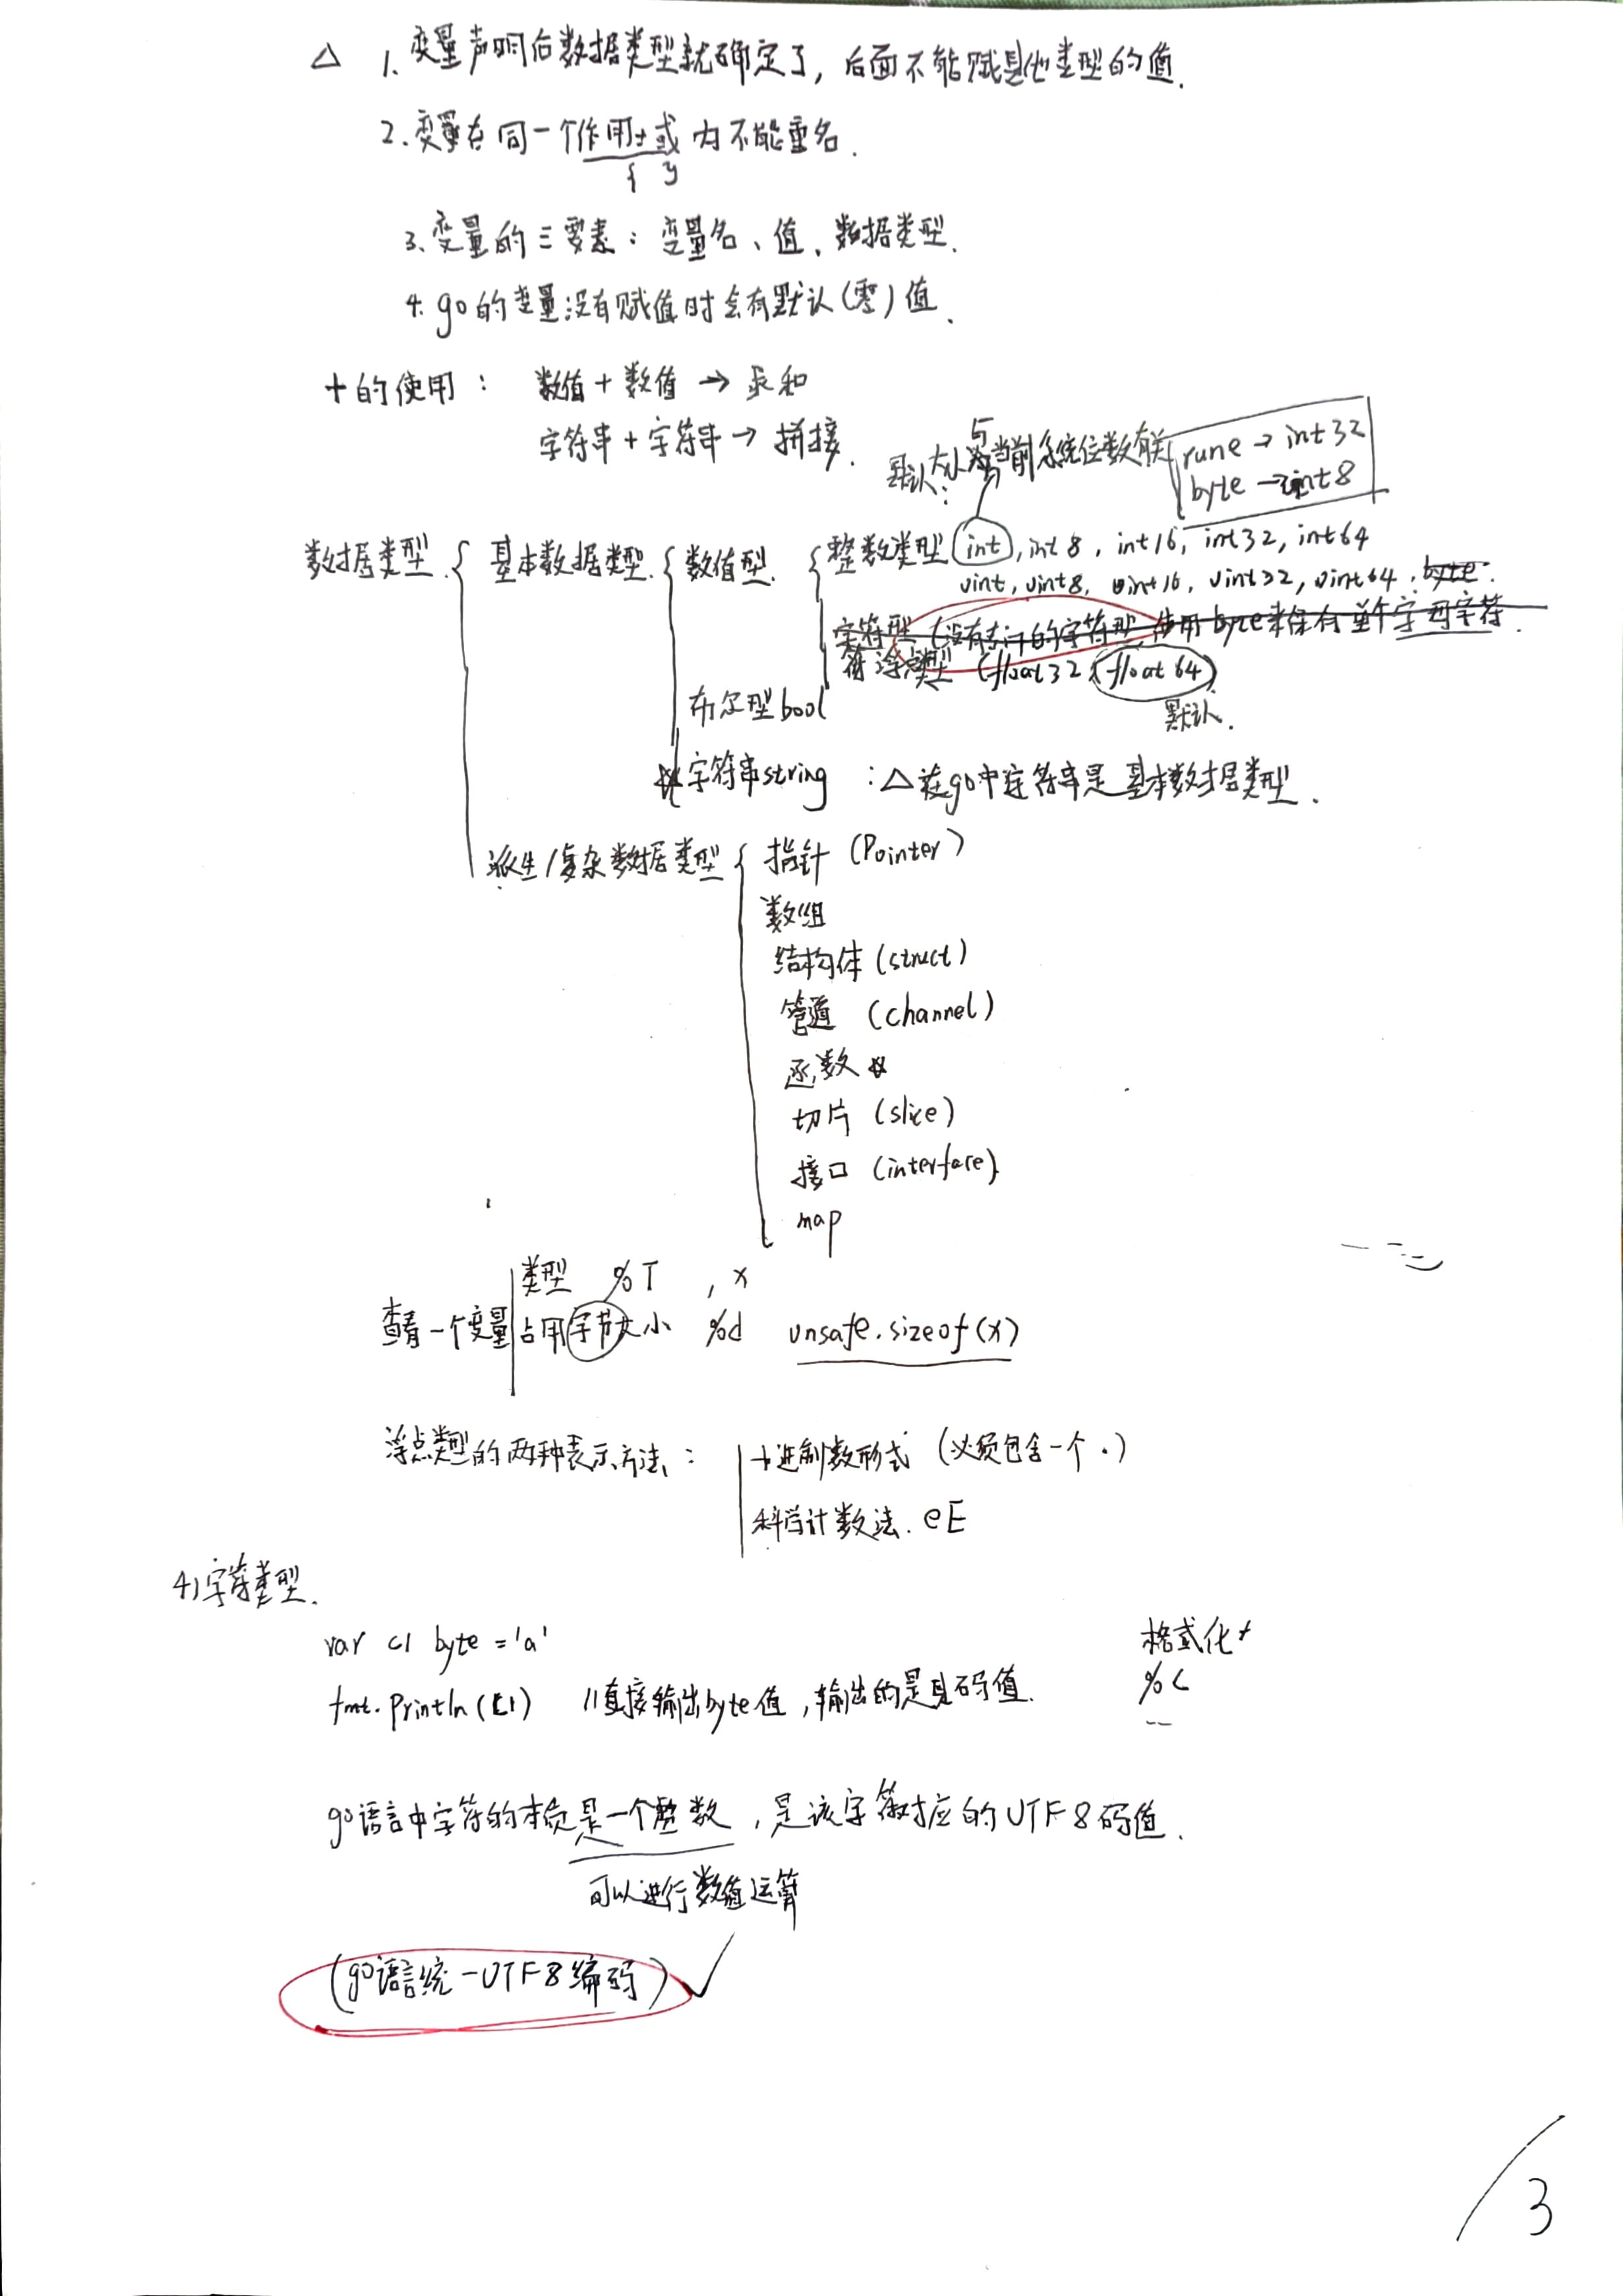 △ 1. 变量声明后数据类型就确定了, 后面不能赋其他类型的值.
2. 变量在同一个作用域内不能重名.
{ }
3. 变量的三要素: 变量名、值、数据类型.
4. go的变量没有赋值时会有默认(零)值.
+的使用: 数值+数值→求和
字符串+字符串→拼接.
默认: 大小与当前系统位数有关
rune → int32
byte → int8
数据类型 { 基本数据类型 { 数值型 { 整数类型 int, int8, int16, int32, int64
uint, uint8, uint16, uint32, uint64, byte.
字符型 (没有专门的字符型, 使用byte来保存单个字母字符.
浮点类型 (float32, float64)
默认.
布尔型bool
字符串string : △在go中字符串是基本数据类型.
派生/复杂数据类型 { 指针 (Pointer)
数组
结构体 (struct)
管道 (channel)
函数
切片 (slice)
接口 (interface)
map
查看一个变量 类型 %T , x
占用字节大小 %d unsafe.sizeof(x)
浮点类型的两种表示方法: 十进制数形式 (必须包含一个 .)
科学计数法. eE
4) 字符类型.
var c1 byte = 'a'
fmt.Println(c1) //直接输出byte值, 输出的是其码值.
格式化
%c
go语言中字符的本质是一个整数, 是该字符对应的UTF8码值.
可以进行数值运算
(go语言统一UTF8编码) ✓
3